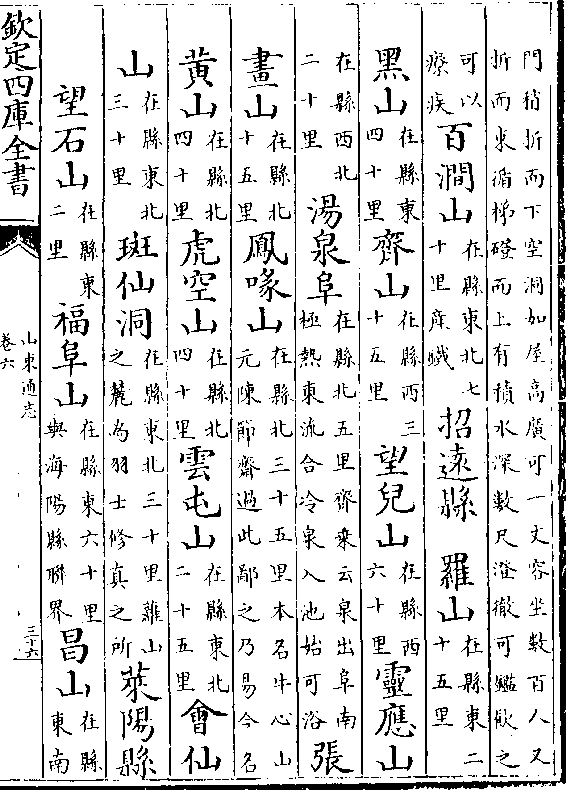 門稍折而下空洞如屋高廣可一丈容坐數百人又
折而東循梯磴而上有積水深數尺澄徹可鑑飲之
可以
療疾
百澗山
在縣東北七
十里產鐵
招遠縣
羅山
在縣東二
十五里
黑山
在縣東
四十里
齊山
在縣西三
十五里
望兒山
在縣西
六十里
靈應山
在縣西北
二十里
湯泉阜
在縣北五里齊乘云泉出阜南
極熱東流合冷泉入池始可浴
張
畫山
在縣北
十五里
鳳喙山
在縣北三十五里本名牛心山
元陳節齋過此鄙之乃易今名
黃山
在縣北
四十里
虎空山
在縣北
四十里
雲屯山
在縣東北
二十五里
會仙
山
在縣東北
三十里
斑仙洞
在縣東北三十里蘿山
之麓為羽士修真之所
萊陽縣
望石山
在縣東
二里
福阜山
在縣東六十里
與海陽縣聯界
昌山
在縣
東南
欽定四庫全書
山東通志
卷六
三十六